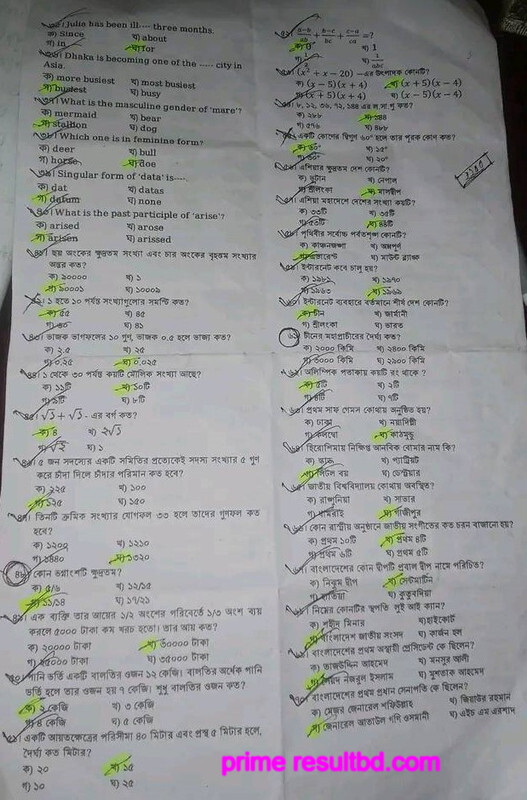 ৩৫। Julie has been ill.... three months.
ক) Since খ) about
গ) in ঘ) for
৩৬। Dhaka is becoming one of the ..... city in
Asia.
ক) more busiest খ) most busiest
গ) busiest ঘ) busy
৩৭। What is the masculine gender of 'mare'?
ক) mermaid খ) bear
গ) stallion ঘ) dog
৩৮। Which one is in feminine form?
ক) deer খ) bull
গ) horse ঘ) doe
৩৯। Singular form of 'data' is.....
ক) dat খ) datas
গ) datum ঘ) none
৪০। What is the past participle of 'arise'?
ক) arised খ) arose
গ) arisen ঘ) arissed
৪১। ছয় অংকের ক্ষুদ্রতম সংখ্যা এবং চার অংকের বৃহত্তম সংখ্যার
অন্তর কত?
ক) ৯০০০০ খ) ১
গ) ৯০০০১ ঘ) ১০০০৯
৪২। ১ হতে ১০ পর্যন্ত সংখ্যাগুলোর সমষ্টি কত?
ক) ৫৫ খ) ৪৫
গ) ৩০ ঘ) ৪১
৪৩। ভাজক ভাগফলের ১০ গুণ, ভাজক ০.৫ হলে ভাজ্য কত?
ক) ২.৫ খ) ২৫
গ) ০.২৫ ঘ) ০.০২৫
৪৪। ১ থেকে ৩০ পর্যন্ত কয়টি মৌলিক সংখ্যা আছে?
ক) ১১টি খ) ১০টি
গ) ৯টি ঘ) ৮টি
৪৫। √3 + √3 - এর বর্গ কত?
ক) ৪ খ) 2√3
গ) √2 ঘ) ১
৪৬। ৫ জন সদস্যের একটি সমিতির প্রত্যেকেই সদস্য সংখ্যার ৫ গুণ
করে চাঁদা দিলে চাঁদার পরিমান কত হবে?
ক) ২২৫ খ) ১০০
গ) ১২৫ ঘ) ১৫০
৪৭। তিনটি ক্রমিক সংখ্যার যোগফল ৩৩ হলে তাদের গুণফল কত
হবে?
ক) ১২০০ খ) ১২১০
গ) ১৪৪০ ঘ) ১৩২০
৪৮। কোন ভগ্নাংশটি ক্ষুদ্রতম?
ক) ৫/৬ খ) ১২/১৫
গ) ১১/১৪ ঘ) ১৭/২১
৪৯। এক ব্যক্তি তার আয়ের ১/২ অংশের পরিবর্তে ১/৩ অংশ ব্যয়
করলে ৫০০০ টাকা কম খরচ হতো। তার আয় কত?
ক) ২০০০০ টাকা খ) ৩০০০০ টাকা
গ) ২৫০০০ টাকা ঘ) ৩৫০০০ টাকা
৫০। পানি ভর্তি একটি বালতির ওজন ১২ কেজি। বালতির অর্ধেক পানি
ভর্তি হলে তার ওজন হয় ৭ কেজি। শুধু বালতির ওজন কত?
ক) ২ কেজি খ) ৩ কেজি
গ) ৪ কেজি ঘ) ৫ কেজি
৫১। একটি আয়তক্ষেত্রের পরিসীমা ৪০ মিটার এবং প্রস্থ ৫ মিটার হলে,
দৈর্ঘ্য কত মিটার?
ক) ২০ খ) ১৫
গ) ১০ ঘ) ২৫
৫২। a-b/ab + b-c/bc + c-a/ca =?
ক) 0 খ) 1
ঘ) 1/abc
৫৩। (x² + x - 20) -এর উৎপাদক কোনটি?
ক) (x - 5)(x + 4) খ) (x + 5)(x - 4)
গ) (x + 5)(x + 4) ঘ) (x - 5)(x - 4)
৫৪। ৮, ১২, ৩৬, ৭২, ১৪৪ এর ল.সা.গু. কত?
ক) ২৮৮ খ) ১৪৪
গ) ৫৭৬ ঘ) ৮৮৮
৫৫। একটি কোণের দ্বিগুণ ৬০° হলে তার পূরক কোণ কত?
ক) ৬০° খ) ১৫°
গ) ৩০° ঘ) ২০°
৫৬। এশিয়ার ক্ষুদ্রতম দেশ কোনটি?
ক) ভুটান খ) নেপাল
গ) শ্রীলংকা ঘ) মালদ্বীপ
৫৭। এশিয়া মহাদেশে দেশের সংখ্যা কয়টি?
ক) ৩৩টি খ) ৩৫টি
গ) ৫৩টি ঘ) ৪৪টি
৫৮। পৃথিবীর সর্বোচ্চ পর্বতশৃঙ্গ কোনটি?
ক) কাঞ্চনজঙ্ঘা খ) অন্নপূর্ণ
গ) এভারেস্ট ঘ) মাউন্ট ব্ল্যাঙ্ক
৫৯। ইন্টারনেট কবে চালু হয়?
ক) ১৯৮১ খ) ১৯৭০
গ) ১৯৬৩ ঘ) ১৯৬৯
৬০। ইন্টারনেট ব্যবহারে বর্তমানে শীর্ষ দেশ কোনটি?
ক) চীন খ) জার্মানী
গ) শ্রীলংকা ঘ) ভারত
৬১। চীনের মহাপ্রাচীরের দৈর্ঘ্য কত?
ক) ২০০০ কিমি খ) ২৪০০ কিমি
গ) ৩০০০ কিমি ঘ) ২৯০০ কিমি
৬২। অলিম্পিক পতাকায় কয়টি রং থাকে ?
ক) ৫টি খ) ২টি
গ) ৪টি ঘ) ৭টি
৬৩। প্রথম সাফ গেমস কোথায় অনুষ্ঠিত হয়?
ক) ঢাকা খ) নয়াদিল্লী
গ) কলম্বো ঘ) কাঠমুন্ডু
৬৪। হিরোশিমায় নিক্ষিপ্ত আনবিক বোমার নাম কি?
খ) প্যাট্রিয়ট
গ) লিটল বয় ঘ) চেন্দ্রীয়ার
৬৫। জাতীয় বিশ্ববিদ্যালয় কোথায় অবস্থিত?
ক) রাঙ্গুনিয়া খ) সাভার
গ) ধামরাই ঘ) গাজীপুর
৬৬। কোন রাষ্ট্রীয় অনুষ্ঠানে জাতীয় সংগীতের কত চরন বাজানো হয়?
ক) প্রথম ১০টি খ) প্রথম ৪টি
গ) প্রথম ৬টি ঘ) প্রথম ৫টি
৬৭। বাংলাদেশের কোন দ্বীপটি প্রবাল দ্বীপ নামে পরিচিত?
ক) নিঝুম দ্বীপ খ) সেন্টমার্টিন
গ) হাতিয়া ঘ) কুতুবদিয়া
৬৮। নিম্নের কোনটির স্থপতি লুই আই ক্যান?
ক) শহীদ মিনার খ) হাইকোর্ট
গ) বাংলাদেশ জাতীয় সংসদ ঘ) কার্জন হল
৬৯। বাংলাদেশের প্রথম অস্থায়ী প্রেসিডেন্ট কে ছিলেন?
ক) তাজউদ্দিন আহমেদ খ) মনসুর আলী
গ) সৈয়দ নজরুল ইসলাম ঘ) মুশতাক আহমেদ
৭০। বাংলাদেশের প্রথম প্রধান সেনাপতি কে ছিলেন?
ক) মেজর জেনারেল শফিউল্লাহ খ) জিয়াউর রহমান
গ) জেনারেল আতাউল গণি ওসমানী ঘ) এইচ এম এরশাদ
prime resultbd.com